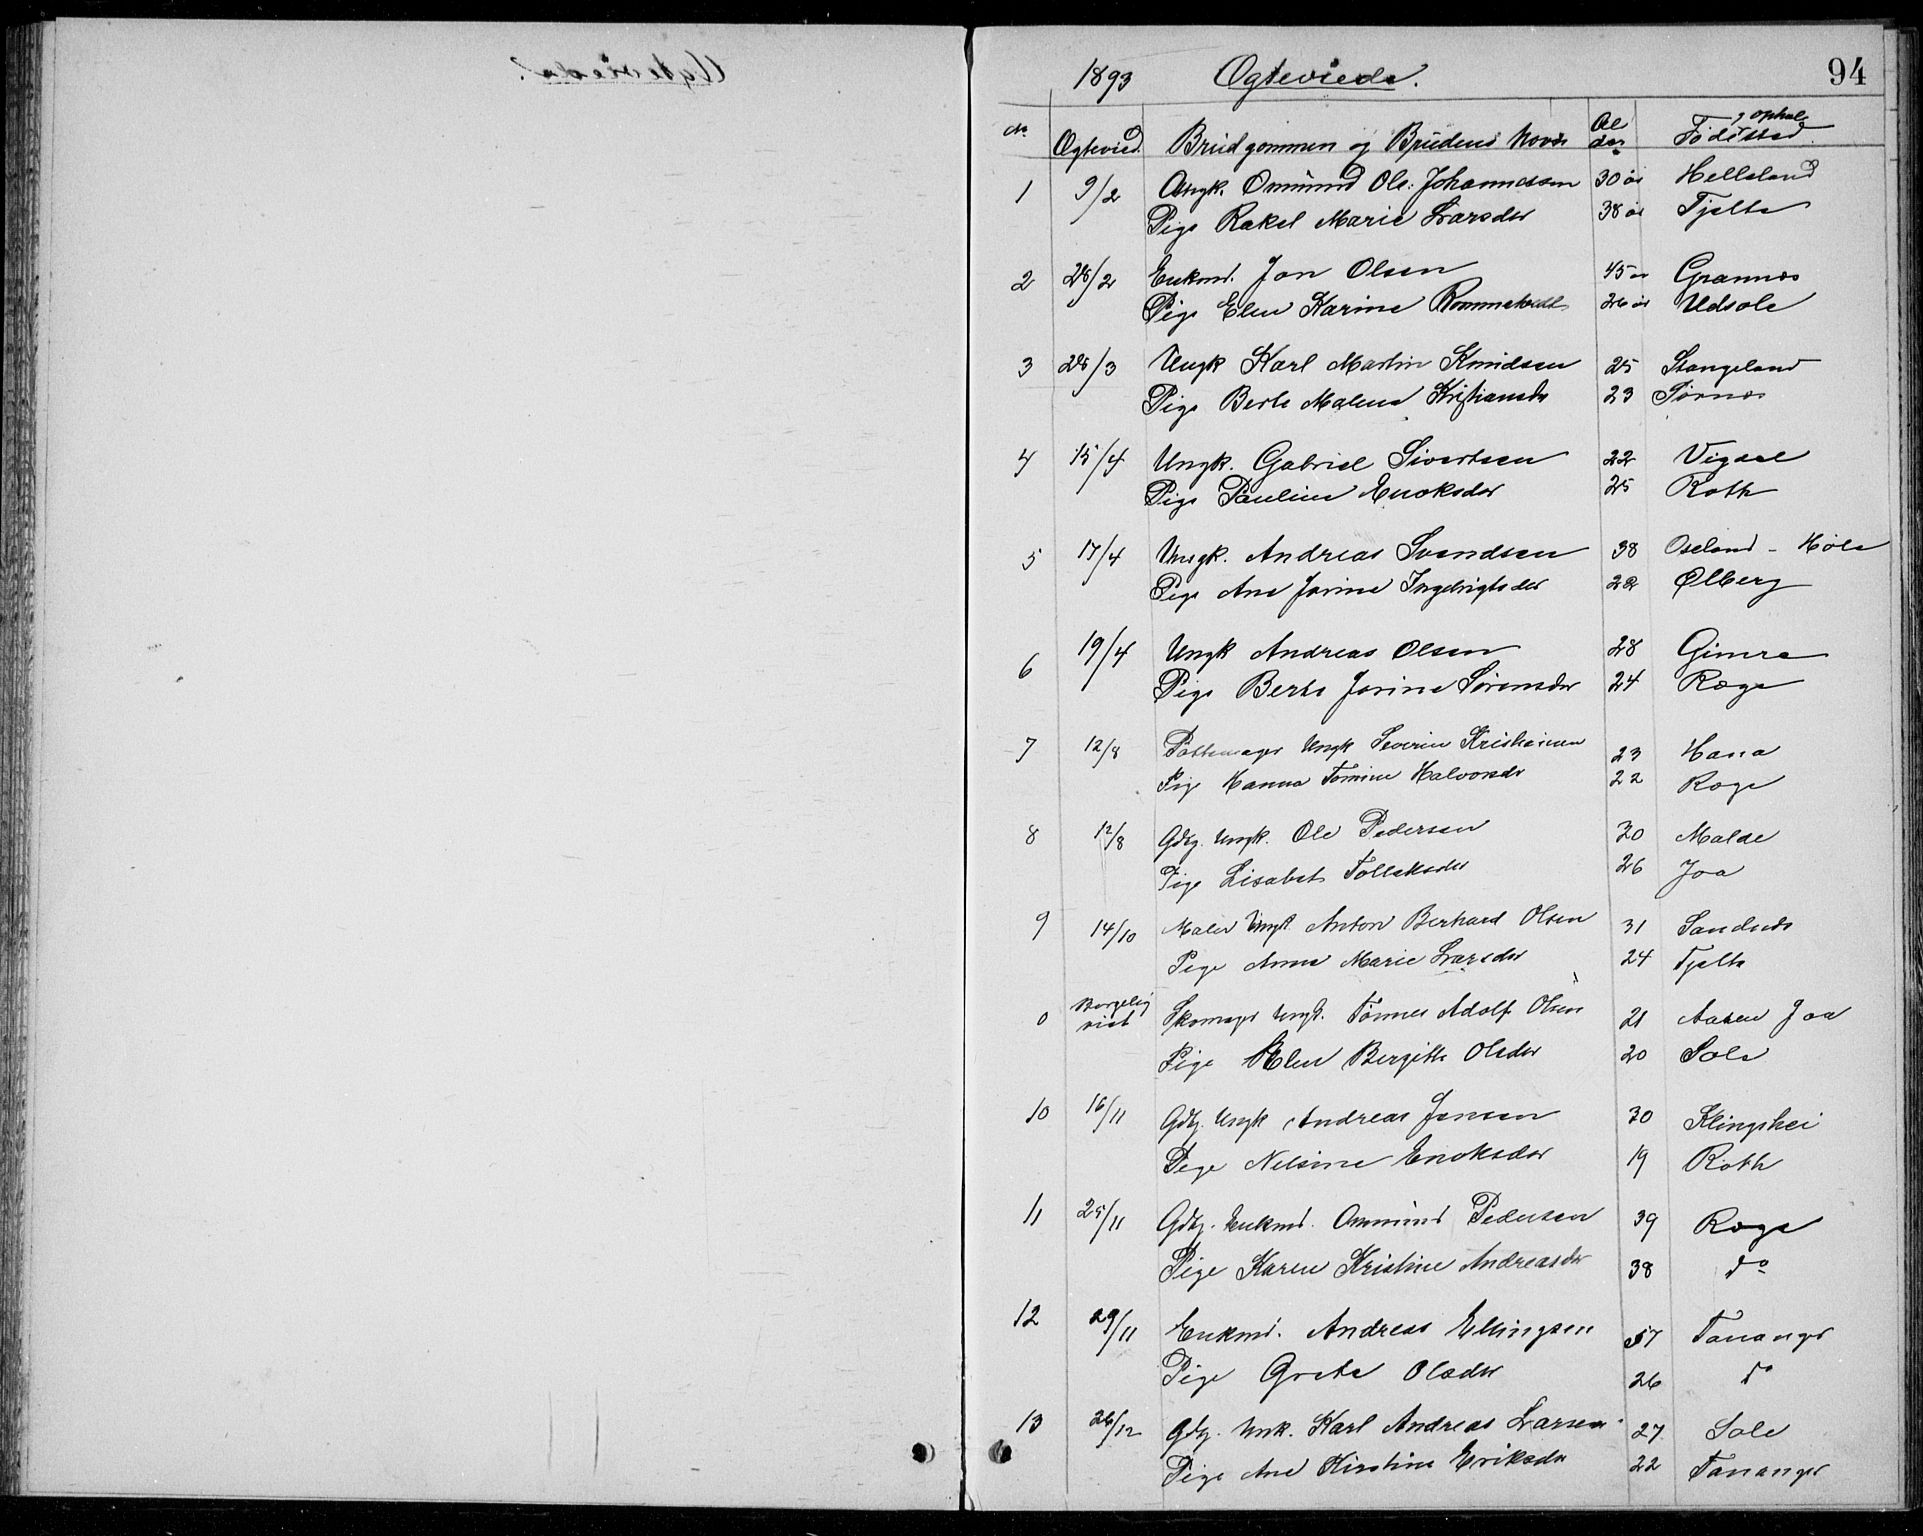 1893 Ogteviede. 94
No Ogtevied. Brudgommen og Brudens Navn Alder Fødested, ophold
1 9/2 Ungk. Omund Ols. Johannessen 30 år Helleland
Pige Rakel Marie Larsdr 38 år Tjelta
2 28/2 Enkmd. Jon Olsen 45 år Grannes
Pige Elen Karine Rommetvedt 26 år Udsole
3 28/3 Ungk Karl Martin Knudsen 25 Stangeland
Pige Berte Malena Kristiansdr 23 Sørnes
4 15/4 Ungk. Gabriel Sivertsen 22 Vigdel
Pige Pauline Enoksdr 25 Roth
5 17/4 Ungk. Andreas Svendsen 38 Oseland - Høle
Pige Ane Jorine Ingebrigtsdr 22 Ølberg
6 19/4 Ungk Andreas Olsen 28 Gimre
Pige Berte Jorine Sørensdr 24 Røge
7 12/8 Pottemager Ungk Severin Kristiansen 23 Hana
Pig Hanna Tomine Halvorsdr 22 Roge
8 12/8 Gdbg. Ungk. Ole Pedersen 30 Malde
Pige Lisabet Tollaksdr 26 Joa
9 14/10 Maler Ungk. Anton Berhard Olsen 31 Sandnes
Pige Anna Marie Larsdr 24 Tjelta
0 Borgelig viet Skomager Ungk. Tønnes Adolf Olsen 21 Aasen Joa
Pige Elen Bergitte Olsdr 20 Sole
10 16/11 Gdbg. Ungk Andreas Jensen 30 Klingshei
Pige Nilsine Enoksdr 19 Roth
11 25/11 Gdbg. Enkmd. Ommund Pedersen 39 Røge
Pige Karen Kristine Andreasdr 38 do
12 29/11 Enkmd. Andreas Ellingsen 57 Tananger
Pige Grete Olsdr 26 do
13 26/12 Gdbg. Unk. Karl Andreas Larsen 27 Sole
Pige Ane Kirstine Eriksdr 22 Tananger